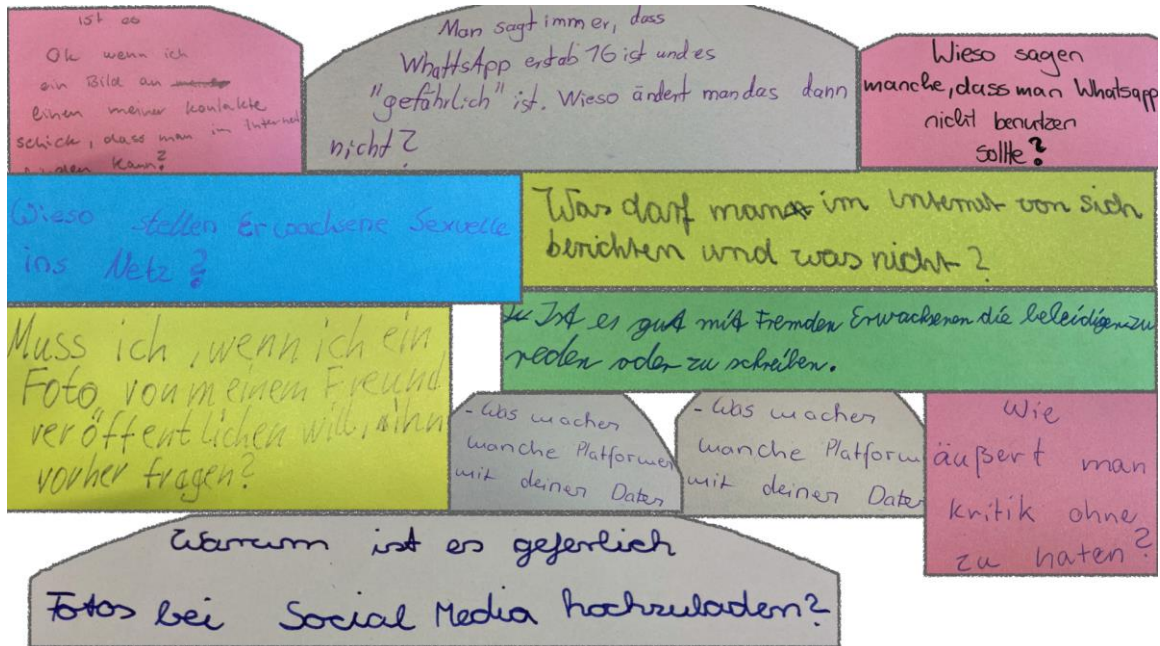 ist es
Ok wenn ich
ein Bild an
einen meiner kontakte
schick, dass man im Internet
kann?
Man sagt immer, dass
WhattsApp erst ab 16 ist und es
"gefährlich" ist. Wieso ändert man das dann
nicht?
Wieso sagen
manche, dass man Whatsapp
nicht benutzen
sollte?
Wieso stellen Erwachsene Sexuelle
ins Netz?
Was darf man im Internet von sich
berichten und was nicht?
Muss ich, wenn ich ein
Foto von meinem Freund
veröffentlichen will, ihn
vorher fragen?
Ist es gut mit Fremden Erwachsenen die beleidigen zu
reden oder zu schreiben.
- Was machen
manche Platformen
mit deinen Daten
- Was machen
manche Platform
mit deinen Daten
Wie
äußert man
kritik ohne
zu haten?
Warum ist es geferlich
Fotos bei Social Media hochzuladen?